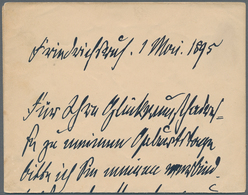 Friedrichsruh. 1 Mai. 1895
Für Ihre Glückwunschadres-
se zu meinem Geburtstage
bitte ich Sie meinen verbind-